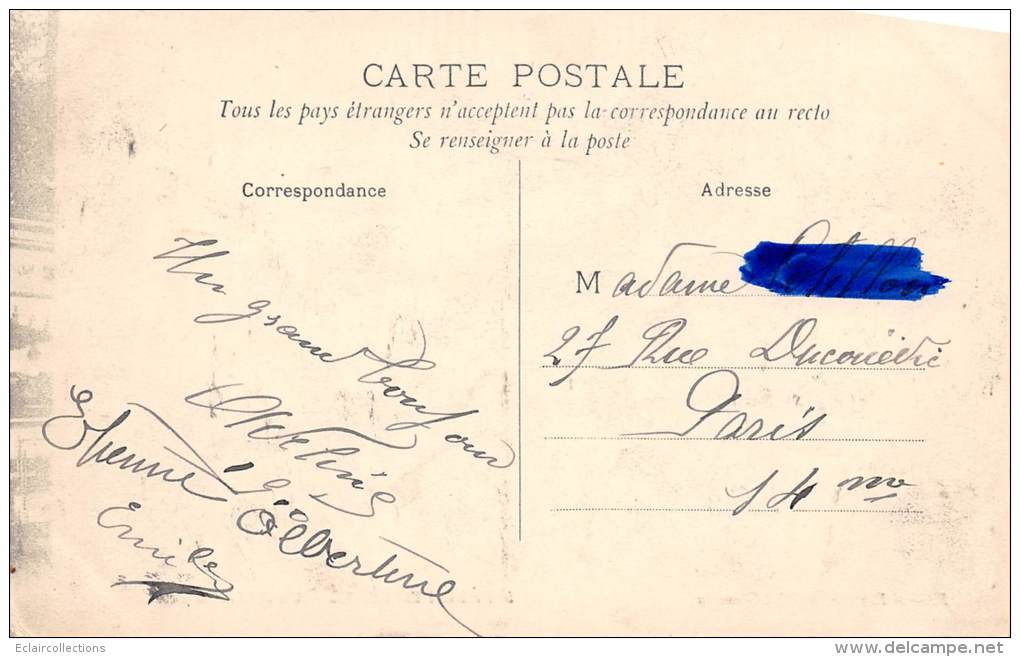 CARTE POSTALE
Tous les pays étrangers n'acceptent pas la correspondance au recto
Se renseigner à la poste
Correspondance
Adresse
Un grand bonjour
Etienne
Albertine
Emile
Madame
27 Rue Ducouëdic
Paris
14 me
Eclaircollections
www.delcampe.net